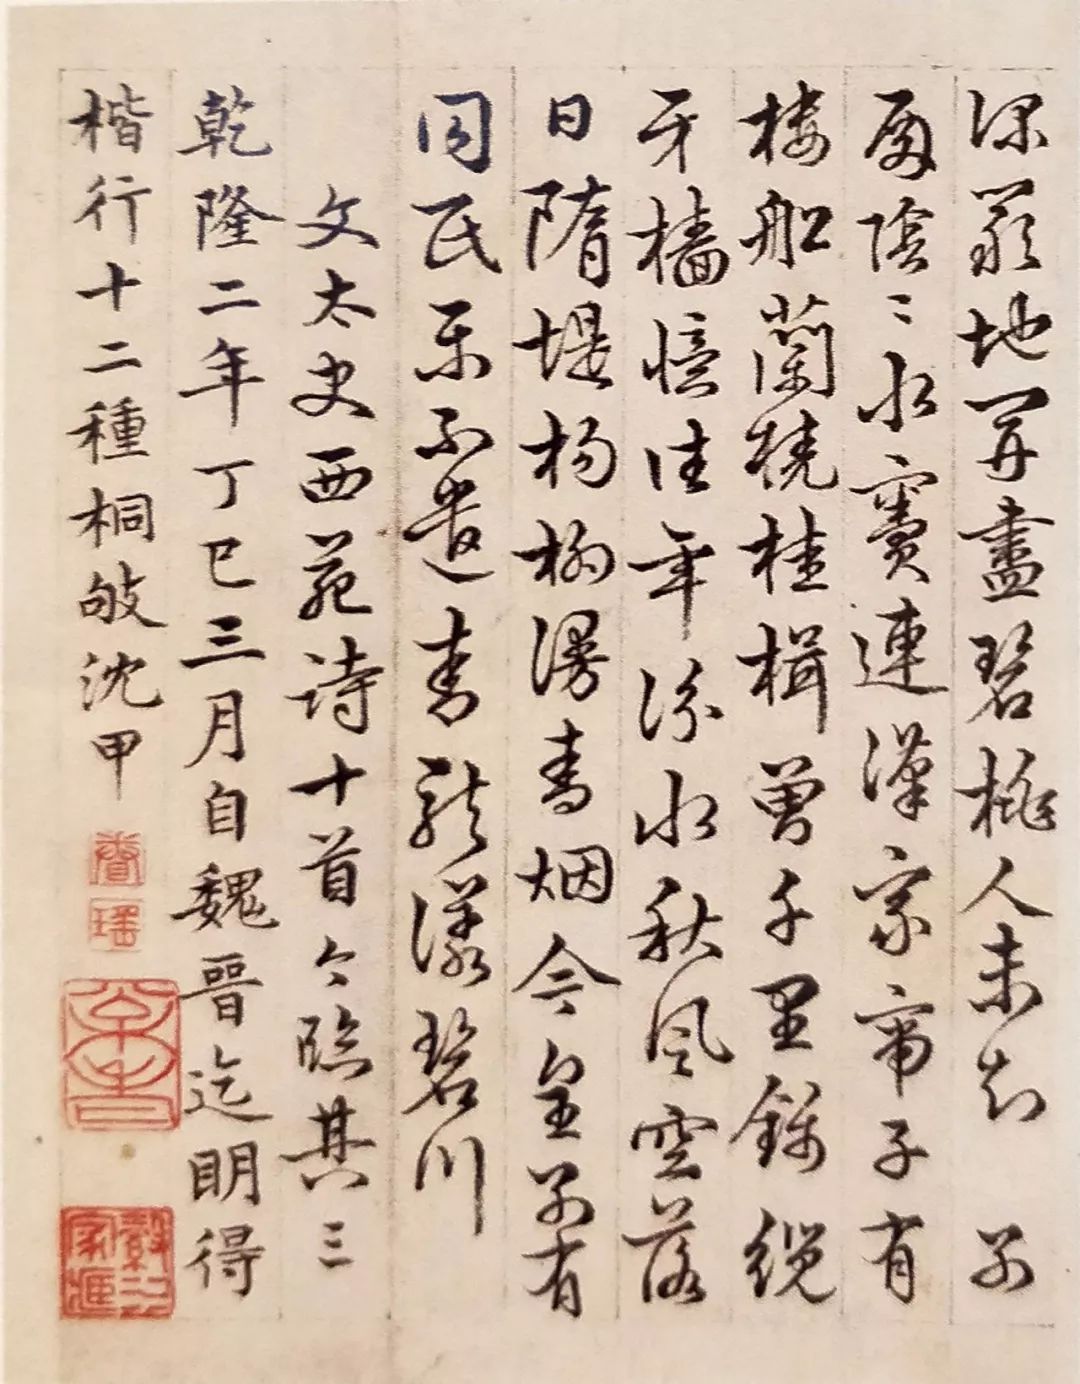 深嚴地開盡碧桃人未知 別
殿陰〻水竇連漢家帝子有
樓船蘭橈桂楫曾千里錦纜
牙檣憶往年汾水秋風空落
日隋堤楊柳漫青烟今皇別有
同民樂不遣青龍漾碧川
文太史西苑詩十首今臨其三
乾隆二年丁巳三月自魏晉迄明得
楷行十二種桐沈甲